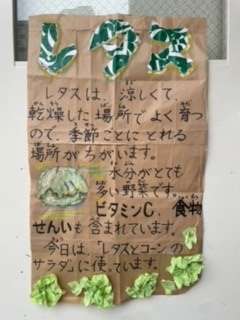 レタス
レタスは、涼しくて、
乾燥した場所でよく育つ
ので、季節ごとにとれる
場所がちがいます。
水分がとても
多い野菜です。
ビタミンC、食物
せんいも含まれています。
今日は、「レタスとコーンの
サラダ」に使っています。